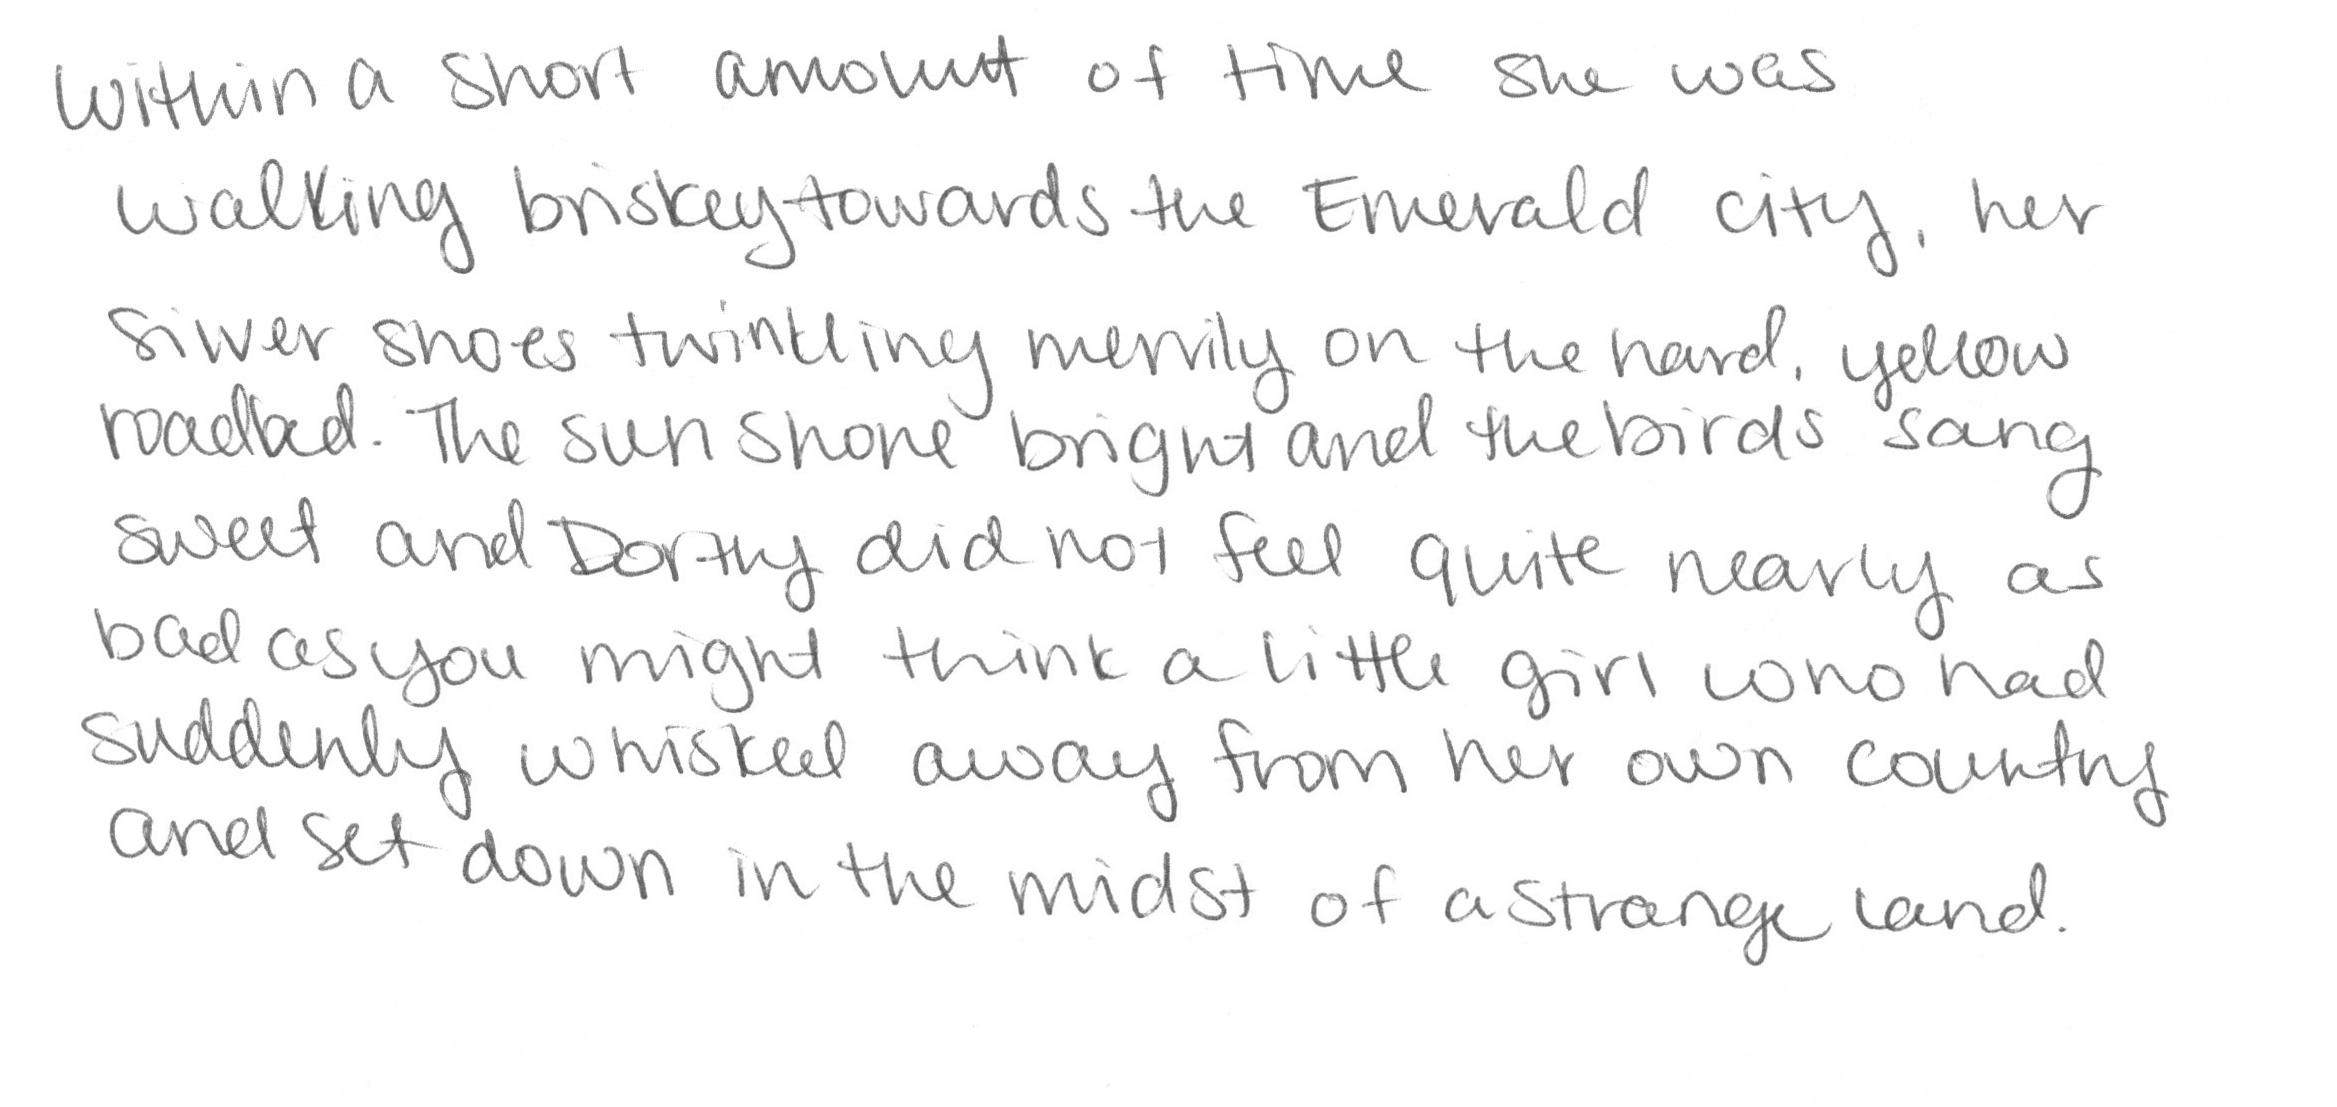 Within a short amount of time she was
walking briskey towards the Emerald city, her
silver shoes twinkling merrily on the hard, yellow
roadbed. The sun shone bright and the birds sang
sweet and Dorthy did not feel quite nearly as
bad as you might think a little girl who had
suddenly whisked away from her own country
and set down in the midst of a strange land.